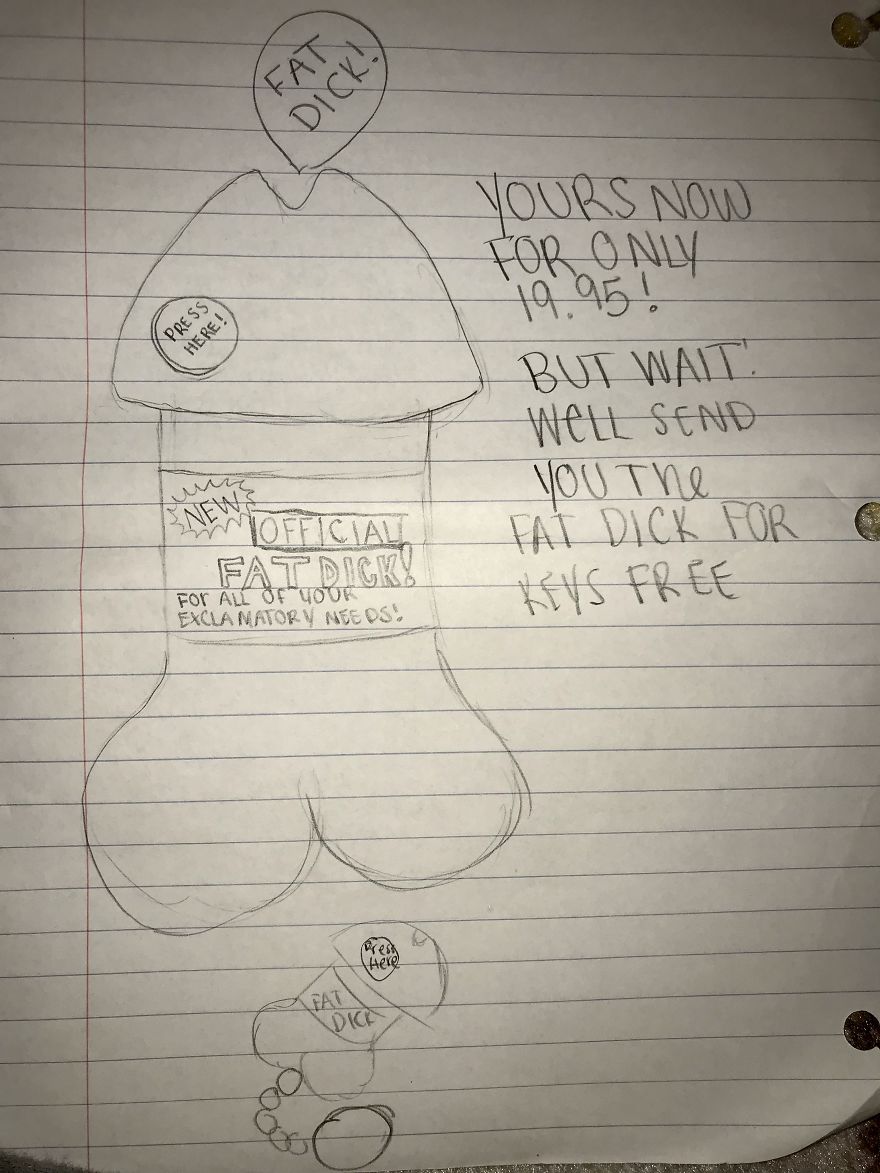 FAT
DICK!
PRESS
HERE!
YOURS NOW
FOR ONLY
19.95!
BUT WAIT!
WELL SEND
YOU The
FAT DICK FOR
KEYS FREE
NEW
OFFICIAL
FAT DICK!
FOR ALL OF YOUR
EXCLAMATORY NEEDS!
Press
Here
FAT
DICK